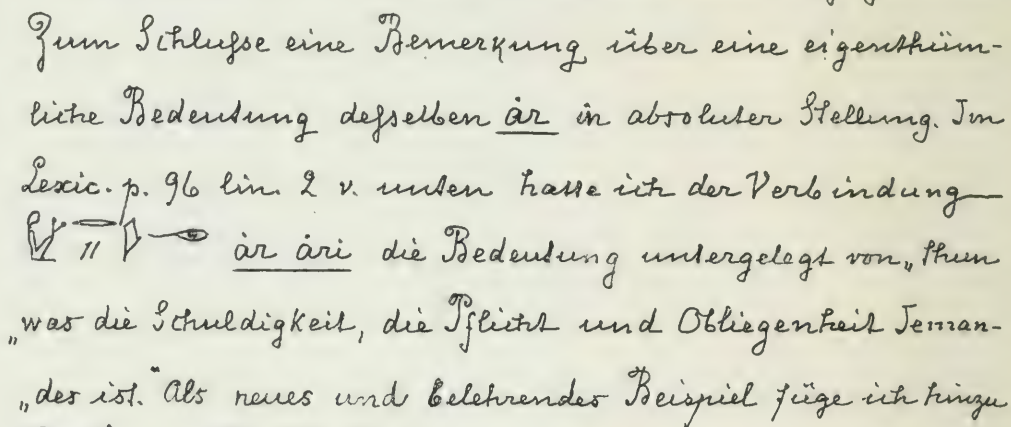 Zum Schlusse eine Bemerkung über eine eigenthüm-
liche Bedeutung desselben ȧr in absoluter Stellung. Im
Lexic. p. 96 lin. 2 v. unten hatte ich der Verbindung
ȧr ȧri die Bedeutung untergelegt von „thun
„was die Schuldigkeit, die Pflicht und Obliegenheit Jeman-
„des ist.“ Als neues und belehrendes Beispiel füge ich hinzu